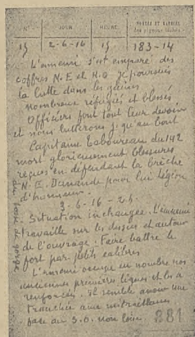 N° JOUR HEURE
19 2-6-16 19 183-14
L'ennemi s'est emparé des
coffres N.E. et N.O. Je poursuis
la lutte dans les gaines
nombreux réfugiés et blessés
Officiers font tout leur devoir
et nous lutterons jusqu'au bout
Capitaine Tabourdeau du 142
mort glorieusement blessures
reçues en défendant la brèche
N.E. Demande pour lui légion
d'honneur
3-6-16 - 26
Situation inchangée. L'ennemi
travaille sur le dessus et autour
de l'ouvrage. Faire battre le
fort par petits calibres
L'ennemi occupe en nombre nos
anciennes premières lignes et les a
renforcées. Il semble avoir une
tranchée avec mitrailleuses
face au S.O. non loin
881